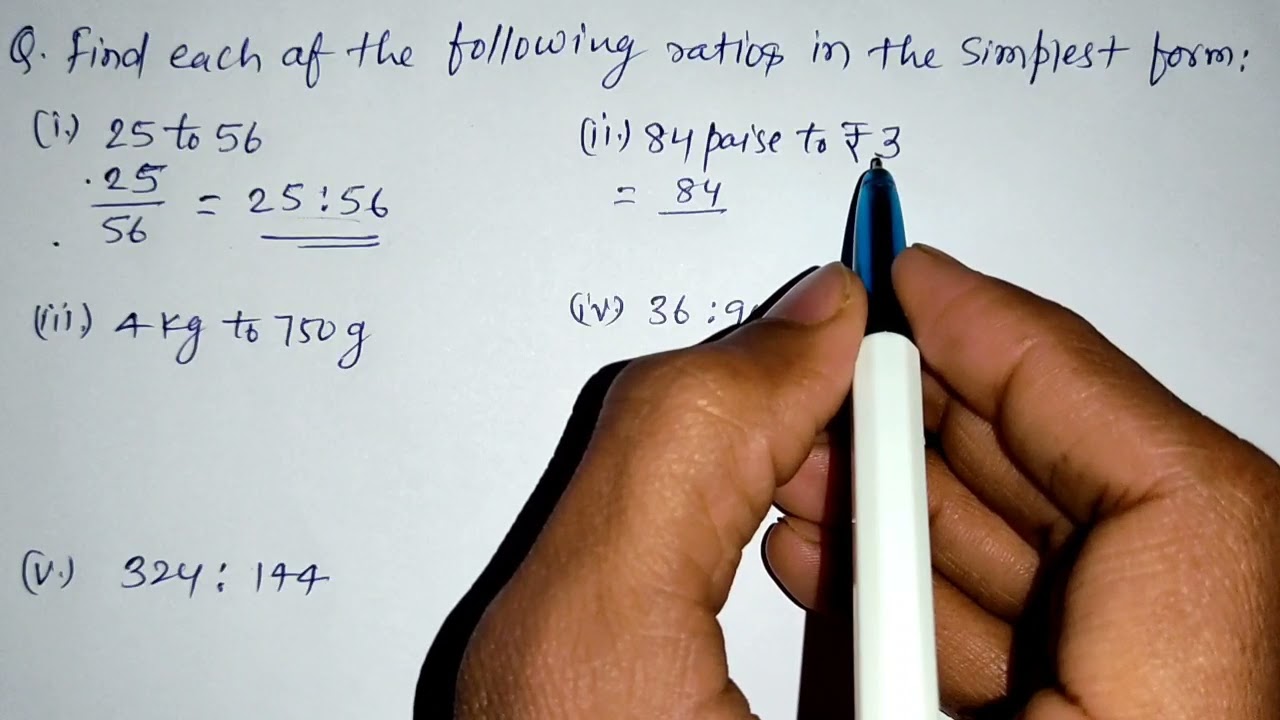 Q. Find each of the following ratios in the simplest form:
(i.) 25 to 56
25
56
= 25 : 56
(ii.) 84 paise to ₹ 3
= 84
(iii.) 4 kg to 750 g
(iv.) 36 :
(v.) 324 : 144